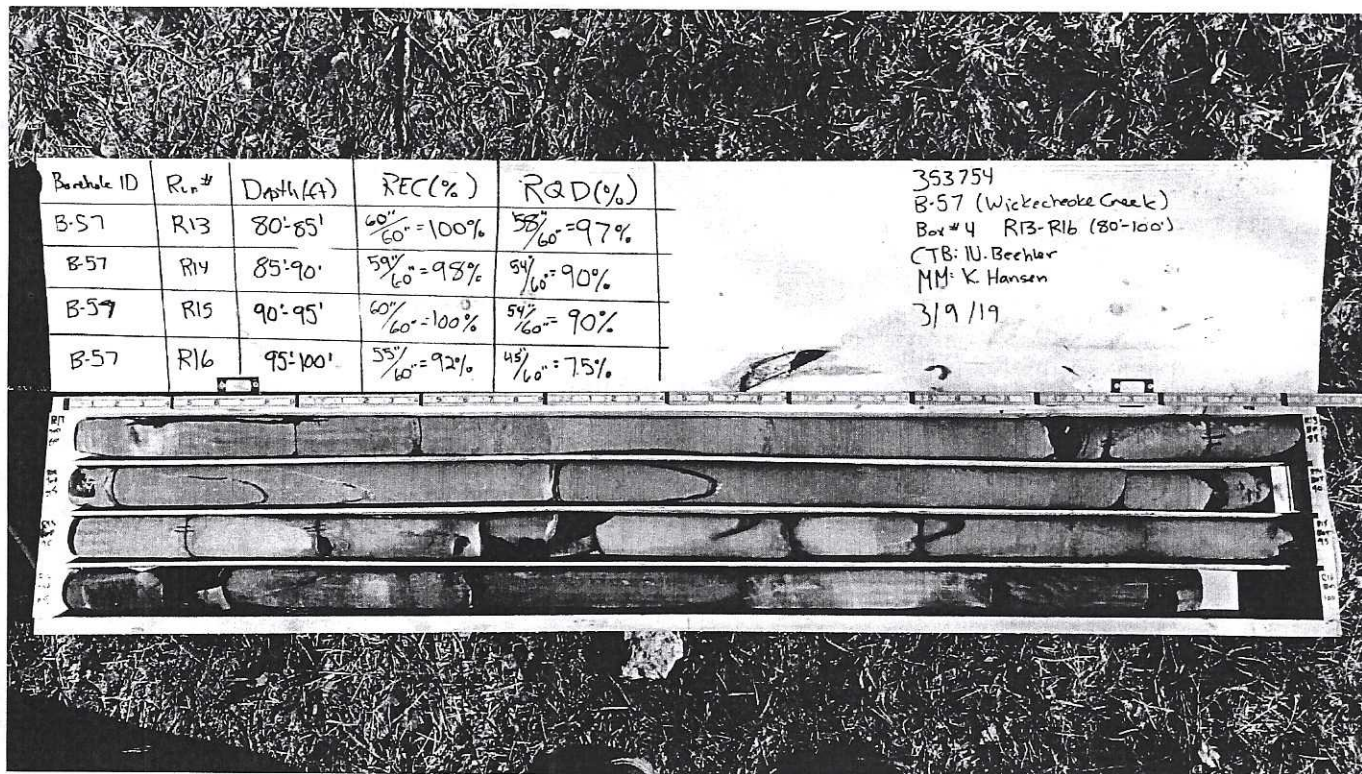 Borehole ID Run# Depth(ft) REC(%) RQD(%)
B-57 R13 80'-85' 60"/60"=100% 58"/60"=97%
B-57 R14 85'-90' 59"/60"=98% 54"/60"=90%
B-57 R15 90'-95' 60"/60"=100% 54"/60"=90%
B-57 R16 95'-100' 55"/60"=92% 45"/60"=75%
353754
B-57 (Wickecheoke Creek)
Box#4 R13-R16 (80'-100')
CTB: N. Beehler
MM: K. Hansen
3/9/19